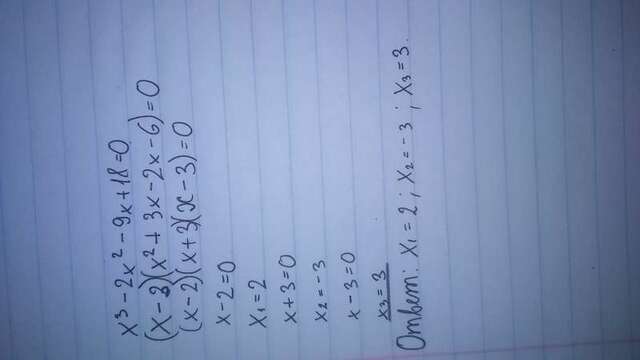 x³ - 2x² - 9x + 18 = 0
(x - 3)(x² + 3x - 2x - 6) = 0
(x - 2)(x + 3)(x - 3) = 0
x - 2 = 0
x₁ = 2
x + 3 = 0
x₂ = -3
x - 3 = 0
x₃ = 3
Ответ: x₁ = 2; x₂ = -3; x₃ = 3.